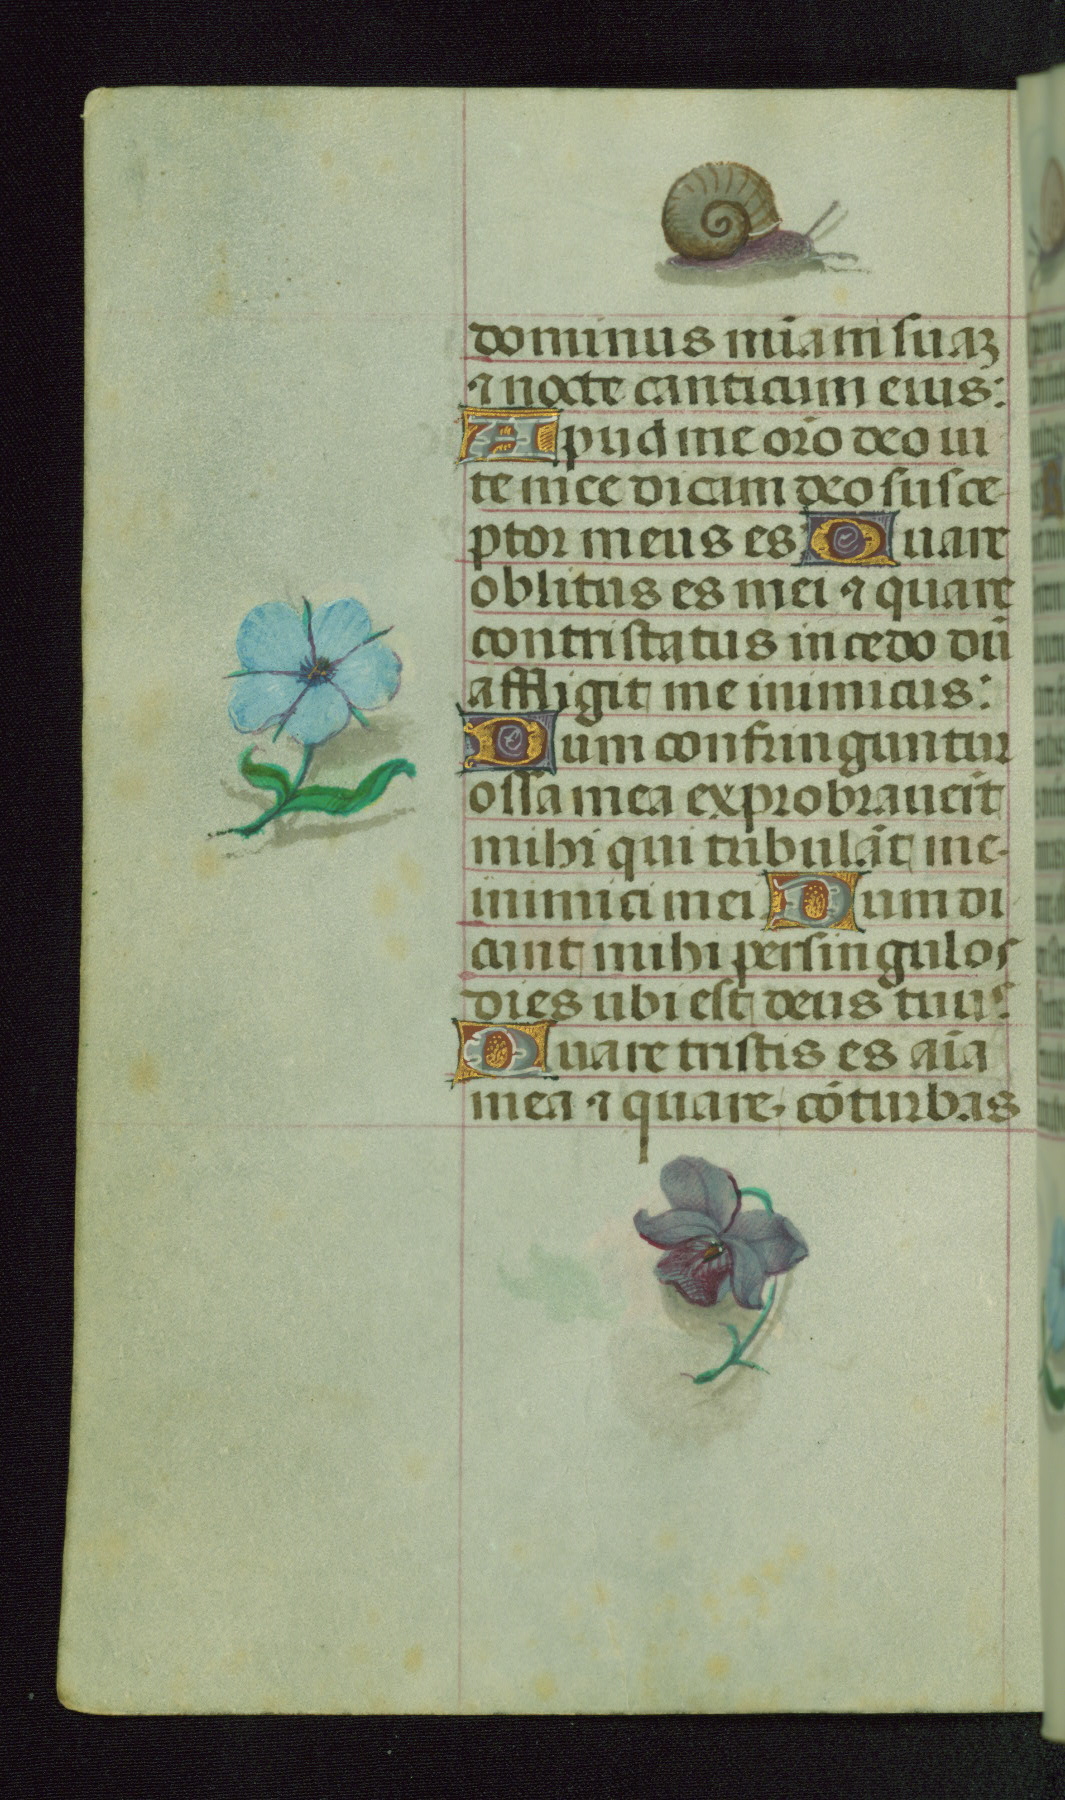 dominus mīam suaꝫ
⁊ nocte canticum eius:
Apud me oro deo ui
te mee dicam deo susce
ptor meus es Quare
oblitus es mei ⁊ quare
contristatus incedo dū
affligit me inimicus:
Dum confringuntur
ossa mea exprobrauerūt
mihi qui tribulāt me
inimici mei Dum di
cunt mihi per singulos
dies ubi est deus tuus:
Quare tristis es aīa
mea ⁊ quare cōturbas